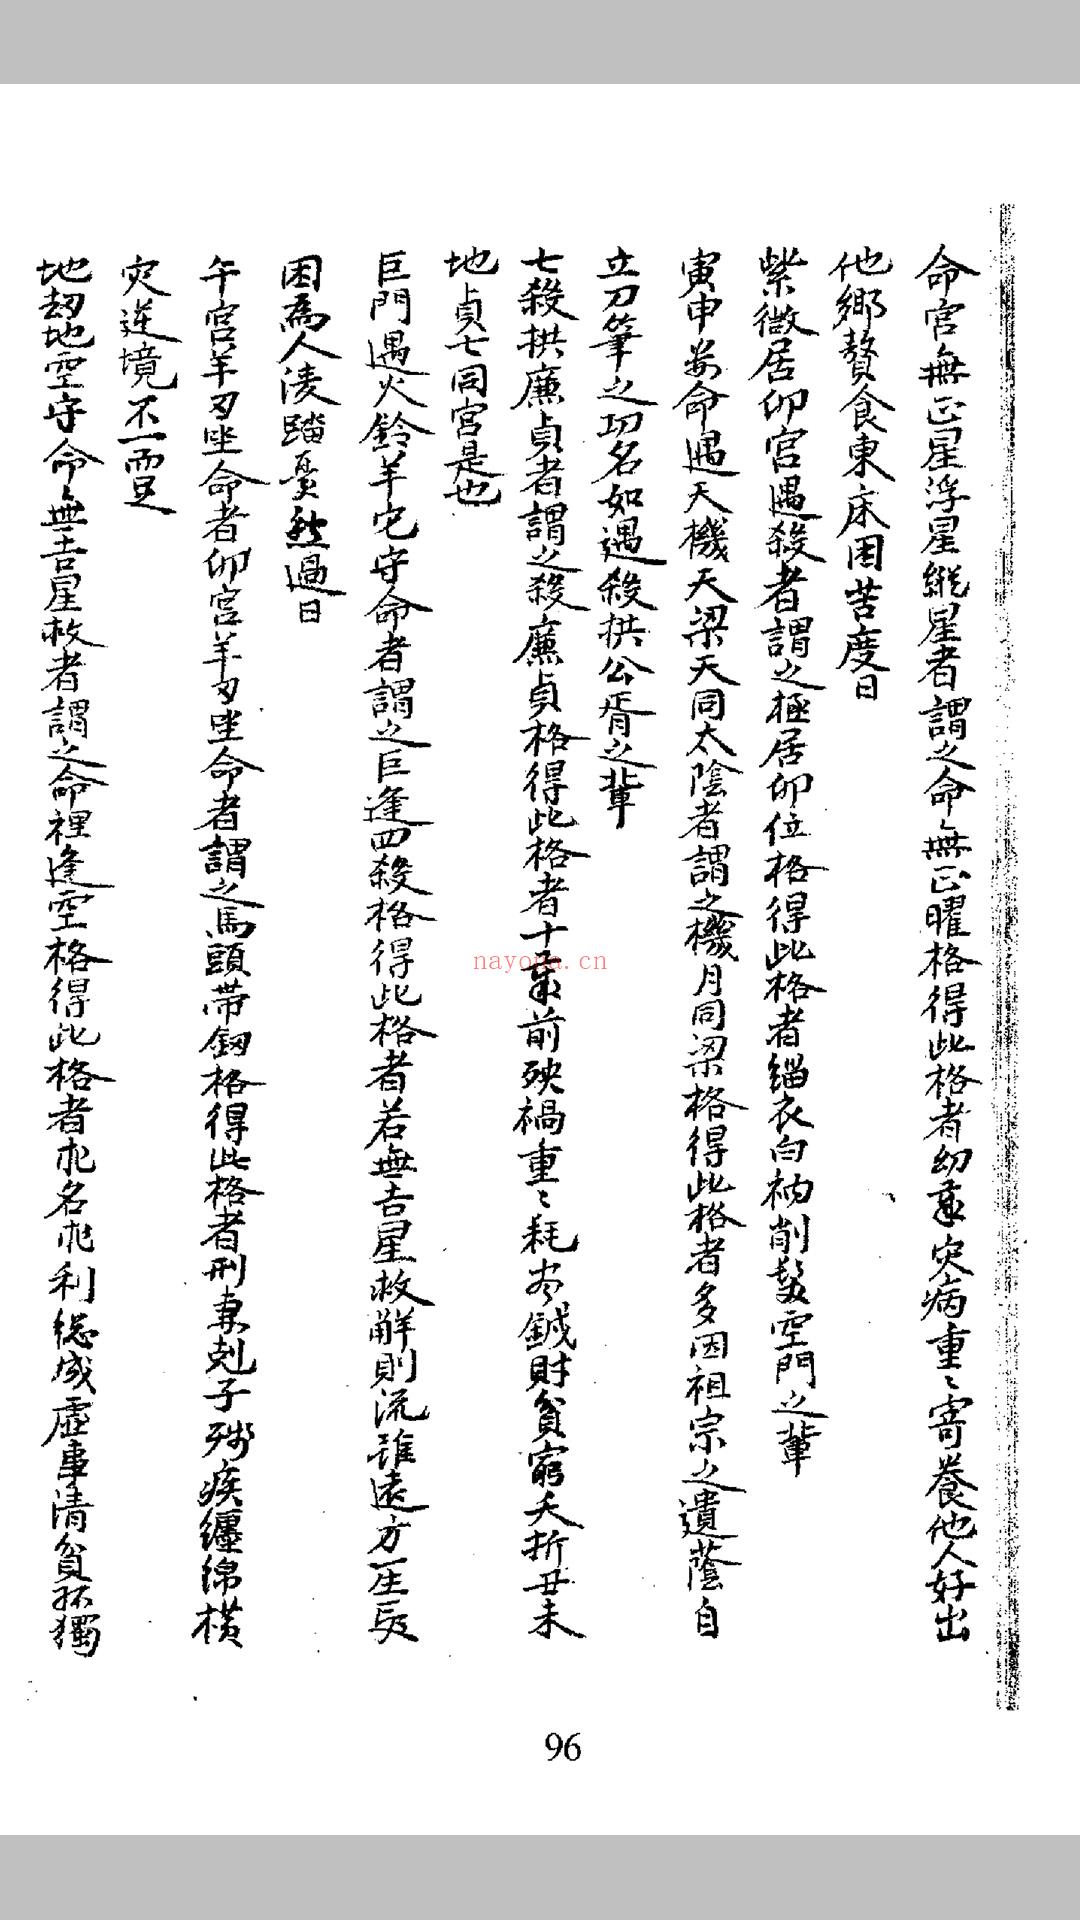 命宮無正星浮星縱星者謂之命無正曜格得此格者幼年灾病重〻寄養他人好出
他鄉贅食東床困苦度日
紫微居卯宮遇殺者謂之極居卯位格得此格者緇衣白衲削髮空門之輩
寅申安命遇天機天梁天同太陰者謂之機月同梁格得此格者多因祖宗之遺蔭自
立刀筆之功名如遇殺拱公胥之輩
七殺拱廉貞者謂之殺廉貞格得此格者十年前殃禍重〻耗尽錢財貧窮夭折丑未
地貞七同宮是也
巨門遇火鈴羊它守命者謂之巨逢四殺格得此格者若無吉星救解則流離遠方一生長
困為人淩踏憂愁過日
午宮羊刃坐命者卯宮羊刃坐命者謂之馬頭帶劒格得此格者刑妻剋子殘疾纏綿橫
灾逆境不一而足
地刼地空守命無吉星救者謂之命裡逢空格得此格者求名求利總成虛事清貧孤獨
nayona.cn
96